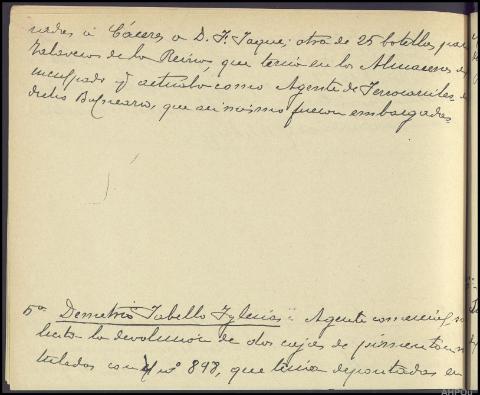 a Cáceres a D. F. Jaque; otra de 25 botellas para
Talavera de la Reina, que tenia en los Almacenes
inculpado y actuaba como Agente de Ferrocarriles
dicho Balneario, que asi mismo fueron embargadas
5º Demetrio Tabello Iglesias: Agente comercial
la devolucion de dos cajas de pimenton
tuladas con el nº 898, que tenia depositadas en
AHPOu